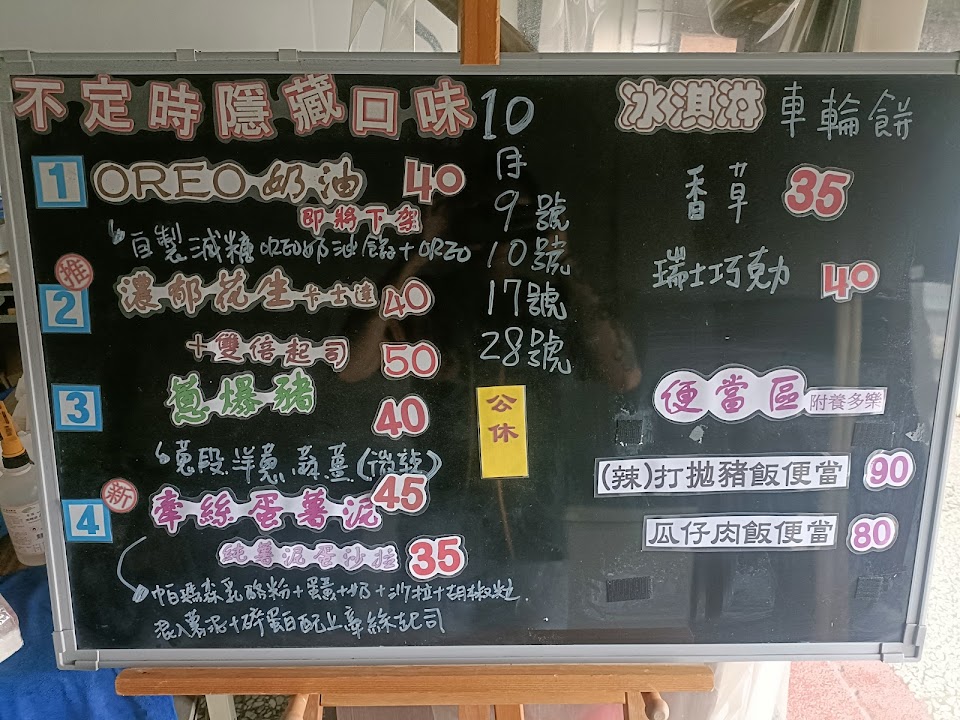 不定時隱藏口味
1 OREO奶油 40
即將下架
自製減糖OREO奶油餡+OREO
推
2 濃郁花生卡士達 40
+雙倍起司 50
3 蔥爆豬 40
蔥段.洋蔥.蒜.薑(微辣)
新
4 牽絲蛋薯泥 45
純薯泥蛋沙拉 35
帕瑪森乳酪粉+蛋黃+奶+沙拉+胡椒粒
混入薯泥+碎蛋白配上牽絲起司
10
月
9號
10號
17號
28號
公休
冰淇淋車輪餅
香草 35
瑞士巧克力 40
便當區 附養多樂
(辣)打拋豬飯便當 90
瓜仔肉飯便當 80